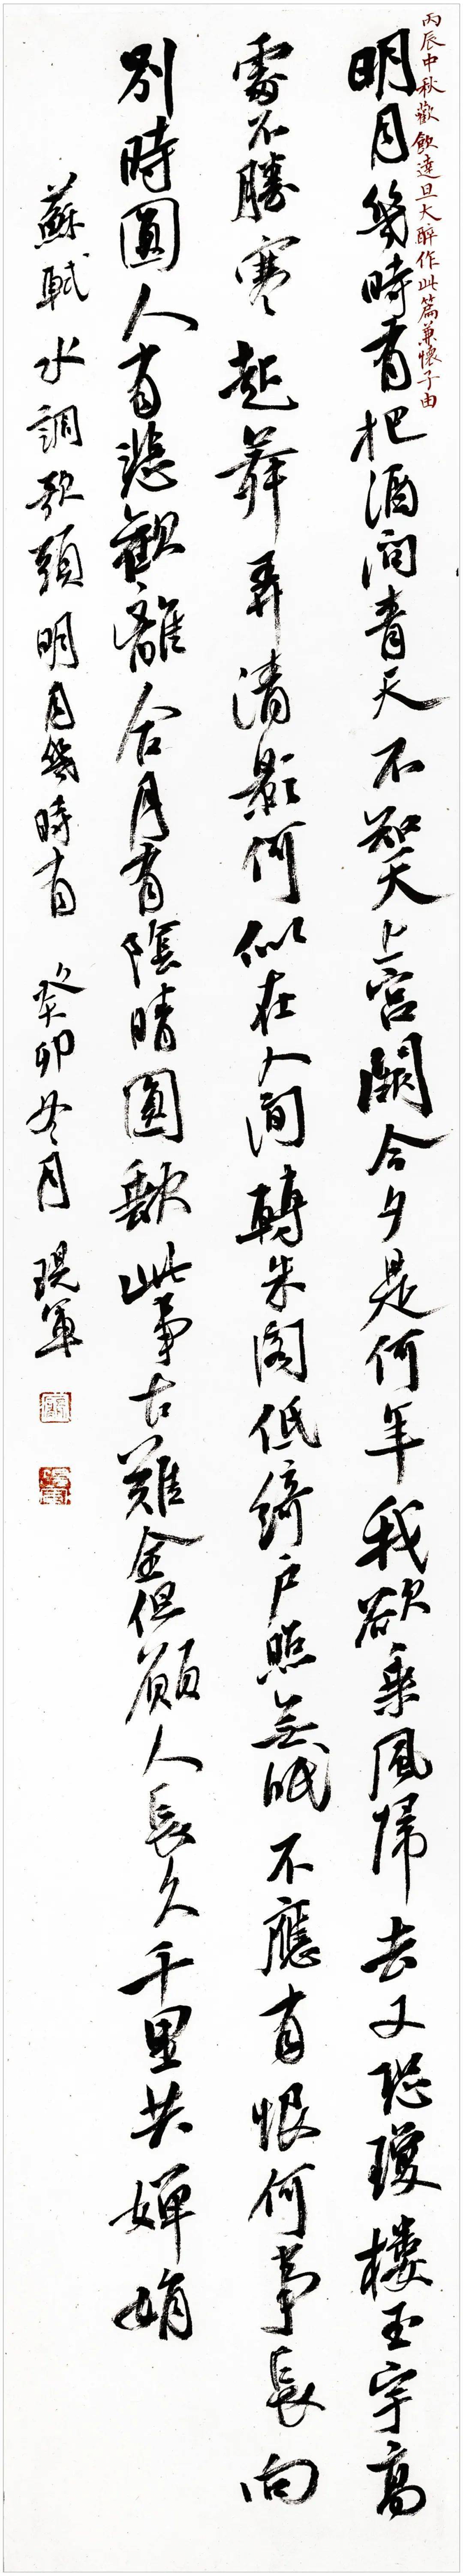 丙辰中秋歡飲達旦大醉作此篇兼懷子由
明月幾時有把酒問青天不知天上宮闕今夕是何年我欲乘風歸去又恐瓊樓玉宇高
處不勝寒起舞弄清影何似在人間轉朱閣低綺戶照無眠不應有恨何事長向
別時圓人有悲歡離合月有陰晴圓缺此事古難全但願人長久千里共嬋娟
蘇軾水調歌頭明月幾時有 癸卯冬月 琨軍